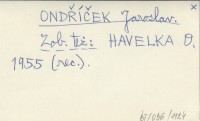 ONDŘÍČEK Jaroslav.
Zob. též: HAVELKA O.
1955 (rec.).